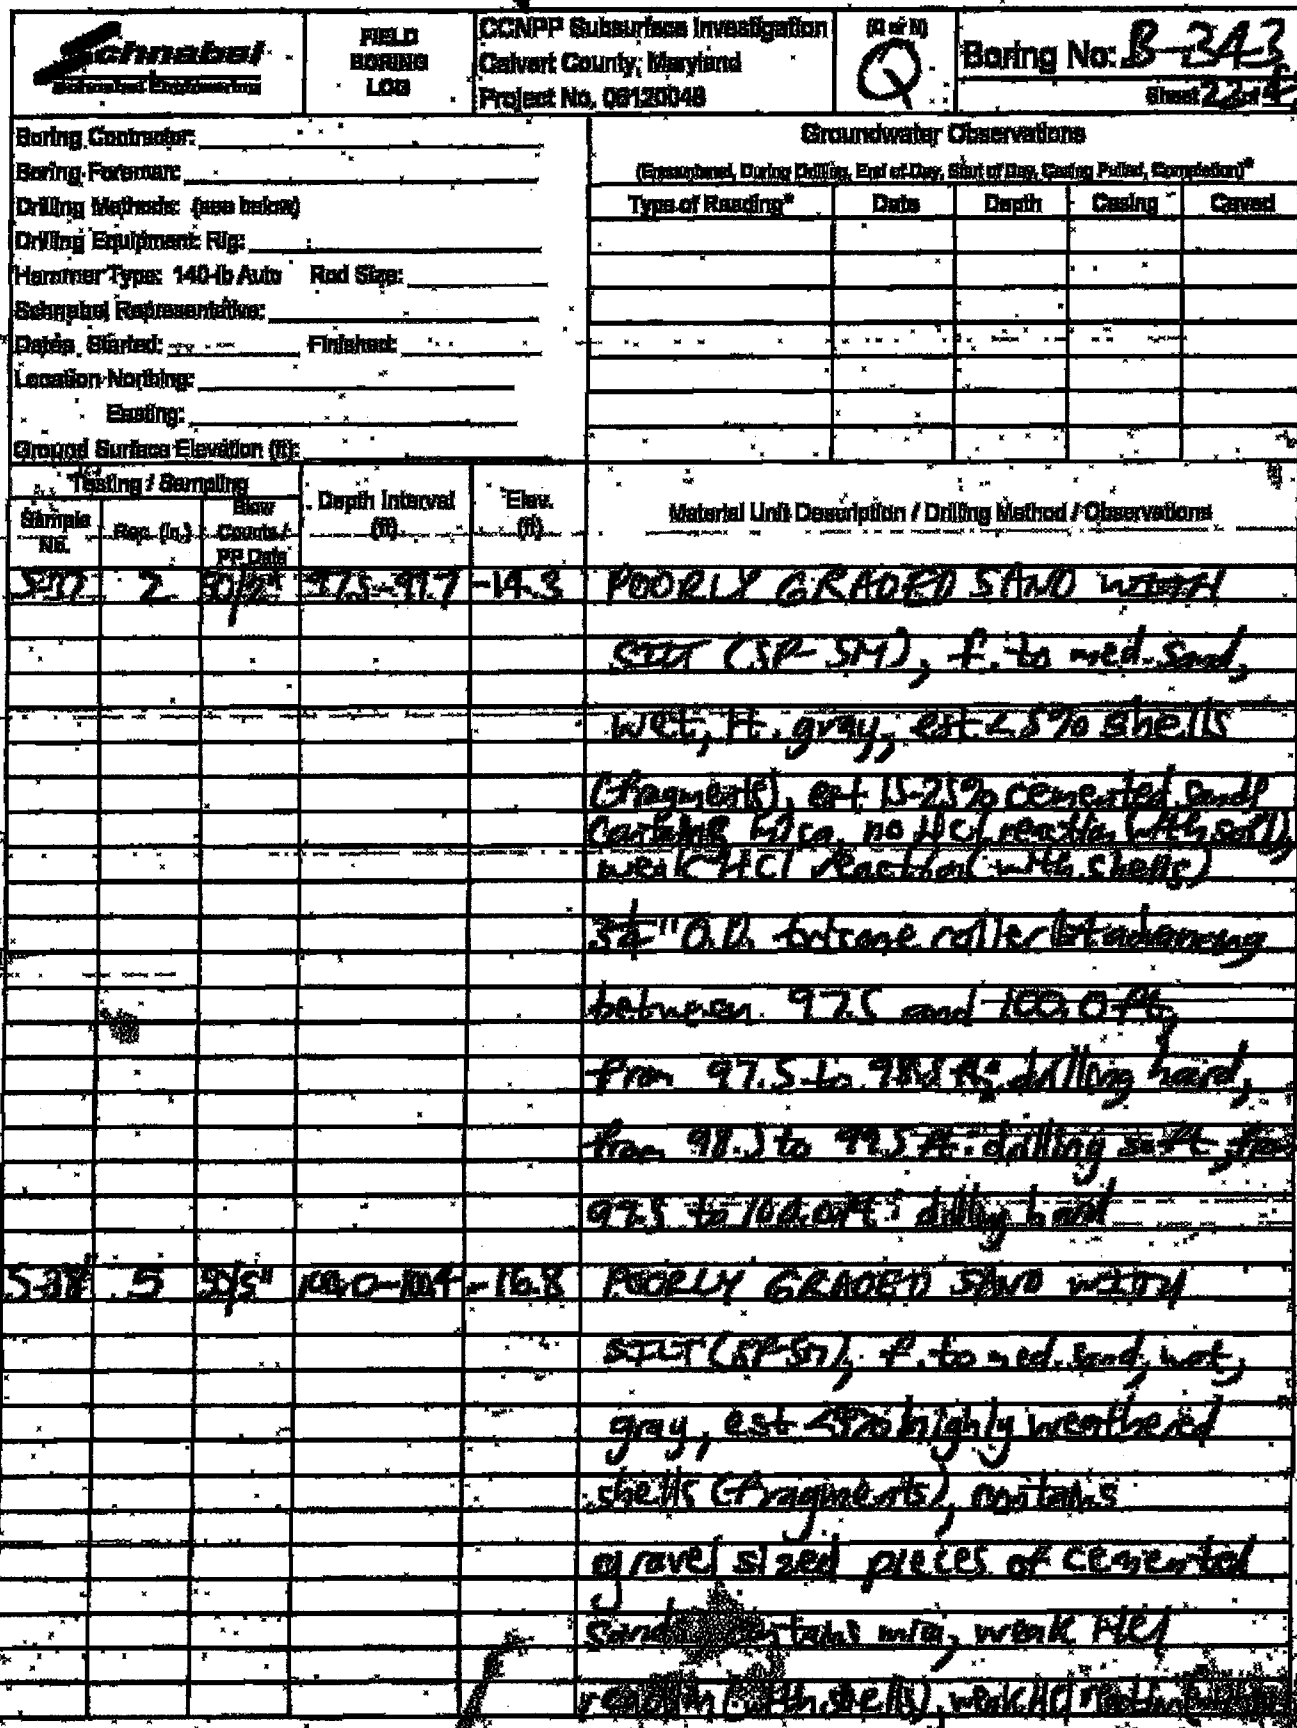 Schnabel
Schnabel Engineering
FIELD
BORING
LOG
CCNPP Subsurface Investigation
Calvert County, Maryland
Project No. 06120048
(Q or N)
Q
Boring No: B-343
Sheet 22 of
Boring Contractor:
Boring Foreman:
Drilling Methods: (see below)
Drilling Equipment: Rig:
Hammer Type: 140-lb Auto Rod Size:
Schnabel Representative:
Dates Started: Finished:
Location Northing:
Easting:
Ground Surface Elevation (ft):
Groundwater Observations
(Encountered, During Drilling, End of Day, Start of Day, Casing Pulled, Completion)*
Type of Reading* Date Depth Casing Caved
Testing / Sampling
Sample No. Rec. (in.) Blow Counts / PP Data Depth Interval (ft) Elev. (ft) Material Unit Description / Drilling Method / Observations
2 50/2" 97.5-97.7 -14.3 POORLY GRADED SAND WITH
SILT (SP-SM), f. to med. sand,
wet, lt. gray, est <5% shells
(fragments), est 15-25% cemented sand,
contains mica, no HCl reaction (with soil),
weak HCl reaction (with shells)
3 "O.D. tricone roller bit advancing
between 97.5 and 100.0 ft.
From 97.5 to 98.5 ft: drilling hard,
from 98.5 to 99.5 ft: drilling soft, from
99.5 to 100.0 ft: drilling hard
S-28 5 50/5" 100.0-100.4 -16.8 POORLY GRADED SAND WITH
SILT (SP-SM), f. to med. sand, wet,
gray, est <5% highly weathered
shells (fragments), contains
gravel sized pieces of cemented
sand, contains mica, weak HCl
reaction (with shells), weak HCl reaction